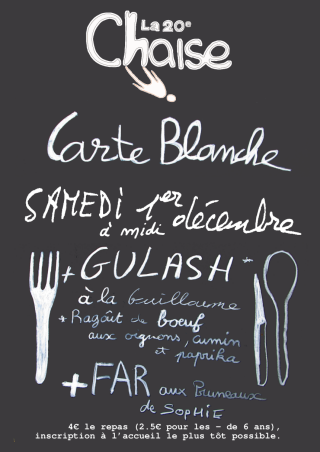 La 20e
Chaise
Carte Blanche
SAMEDI 1er décembre
à midi
+ GULASH *
à la Guillaume
* Ragoût de boeuf
aux oignons, cumin
et paprika
+ FAR aux Pruneaux
de SOPHIE
4€ le repas (2.5€ pour les - de 6 ans),
inscription à l'accueil le plus tôt possible.